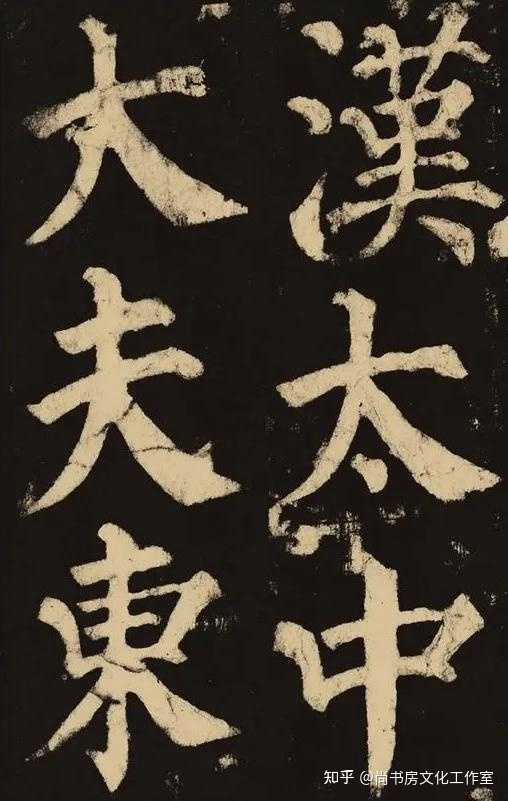 漢太中
大夫東
知乎 @尚书房文化工作室